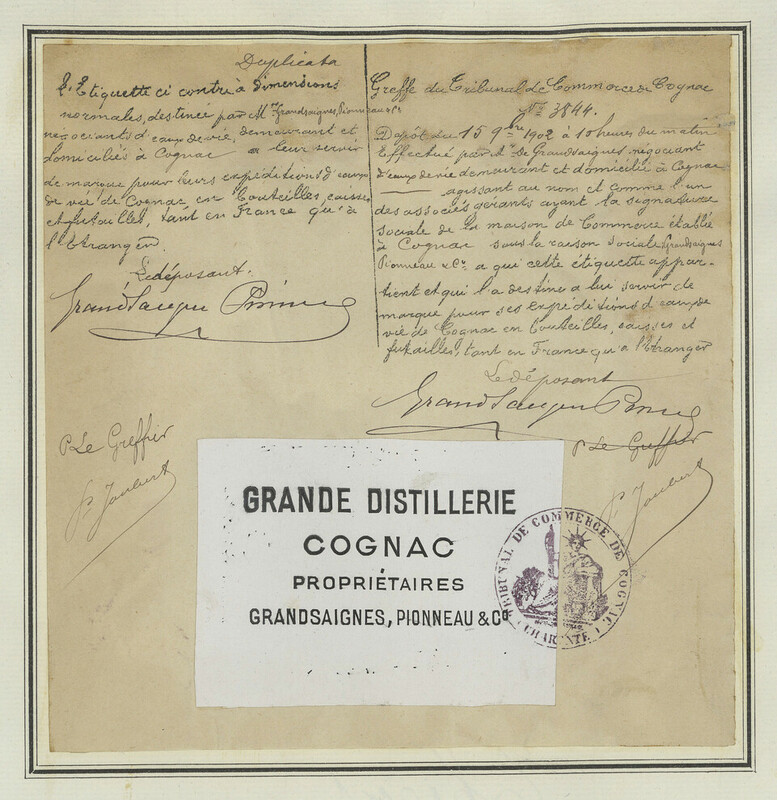 Duplicata
L'Etiquette ci contre à dimensions
normales, destinée par Mrs Grandsaignes, Pionneau & Co
négociants d'eaux de vie, demeurant et
domiciliés à Cognac a leur servir
de marque pour leurs expéditions d'eaux
de vie de Cognac, en bouteilles, caisses
et futailles, tant en France qu'à
l'Etranger.
Le déposant.
P Le Greffier
P. Joubert
Greffe du Tribunal de Commerce de Cognac
No 3844.
Dépôt du 15 9bre 1902 à 10 heures du matin
Effectué par Mr de Grandsaignes, négociant
d'eaux de vie demeurant et domicilié à Cognac
agissant au nom et comme l'un
des associés gérants ayant la signature
sociale de la maison de Commerce établie
à Cognac sous la raison sociale Grandsaignes
Pionneau & Co a qui cette étiquette appar-
tient et qui l'a destine a lui servir de
marque pour ses expéditions d'eaux de
vie de Cognac en bouteilles, caisses et
futailles, tant en France qu'a l'Etranger
Le déposant
P Le Greffier
P. Joubert
GRANDE DISTILLERIE
COGNAC
PROPRIÉTAIRES
GRANDSAIGNES, PIONNEAU & Co
TRIBUNAL DE COMMERCE DE COGNAC
(CHARENTE)